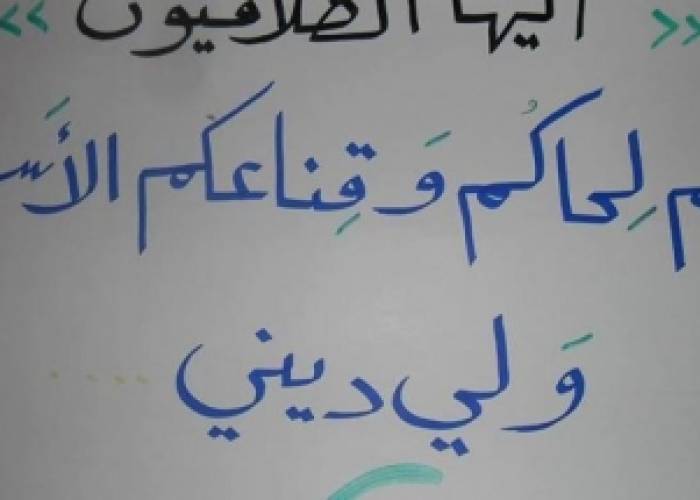 << أيها الظلاميون >>
لِحاكُم وَ قِناعكم الأَسـ
وَ لي ديني ....